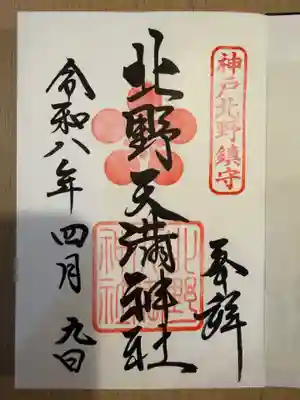 神戸北野鎮守
奉拝
北野天満神社
令和八年四月九日